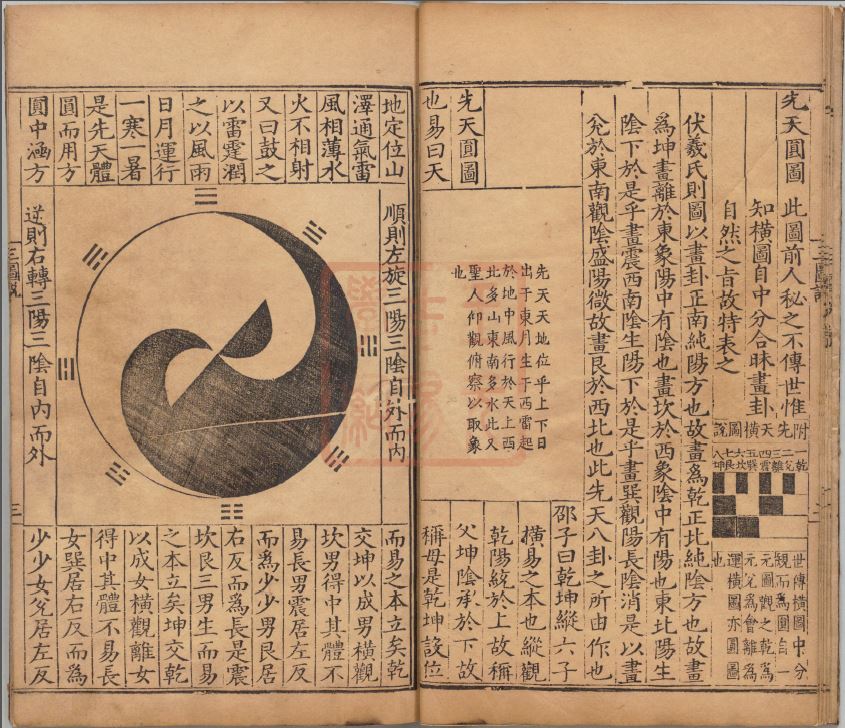 先天圓圖 此圖前人秘之不傳世惟
知橫圖自中分合昧畫卦
自然之旨故特表之
附先天橫圖說
一乾
二兌
三離
四震
五巽
六坎
七艮
八坤
世傳橫圖中分
規而爲圓自
元圖觀之乾爲
元兌爲會離爲
運橫圖亦圓圖
也
伏羲氏則圖以畫卦正南純陽方也故畫爲乾正北純陰方也故畫
爲坤畫離於東象陽中有陰也畫坎於西象陰中有陽也東北陽生
陰下於是乎畫震西南陰生陽下於是乎畫巽觀陽長陰消是以畫
兌於東南觀陰盛陽微故畫艮於西北也此先天八卦之所由作也
先天圓圖
也易曰天
地定位山
澤通氣雷
風相薄水
火不相射
又曰鼓之
以雷霆潤
之以風雨
日月運行
一寒一暑
是先天體
圓而用方
圓中涵方
先天天地位乎上下日
出于東月生于西雷起
於地中風行於天上西
北多山東南多水此又
聖人仰觀俯察以取象
也
順則左旋三陽三陰自外而內
逆則右轉三陽三陰自內而外
邵子曰乾坤縱六子
橫易之本也縱觀
乾陽統於上故稱
父坤陰承於下故
稱母是乾坤設位
而易之本立矣乾
交坤以成男橫觀
坎男得中其體不
易長男震居左反
而爲少少男艮居
右反而爲長是震
坎艮三男生而易
之本立矣坤交乾
以成女橫觀離女
得中其體不易長
女巽居右反而爲
少少女兌居左反
三圖說
三